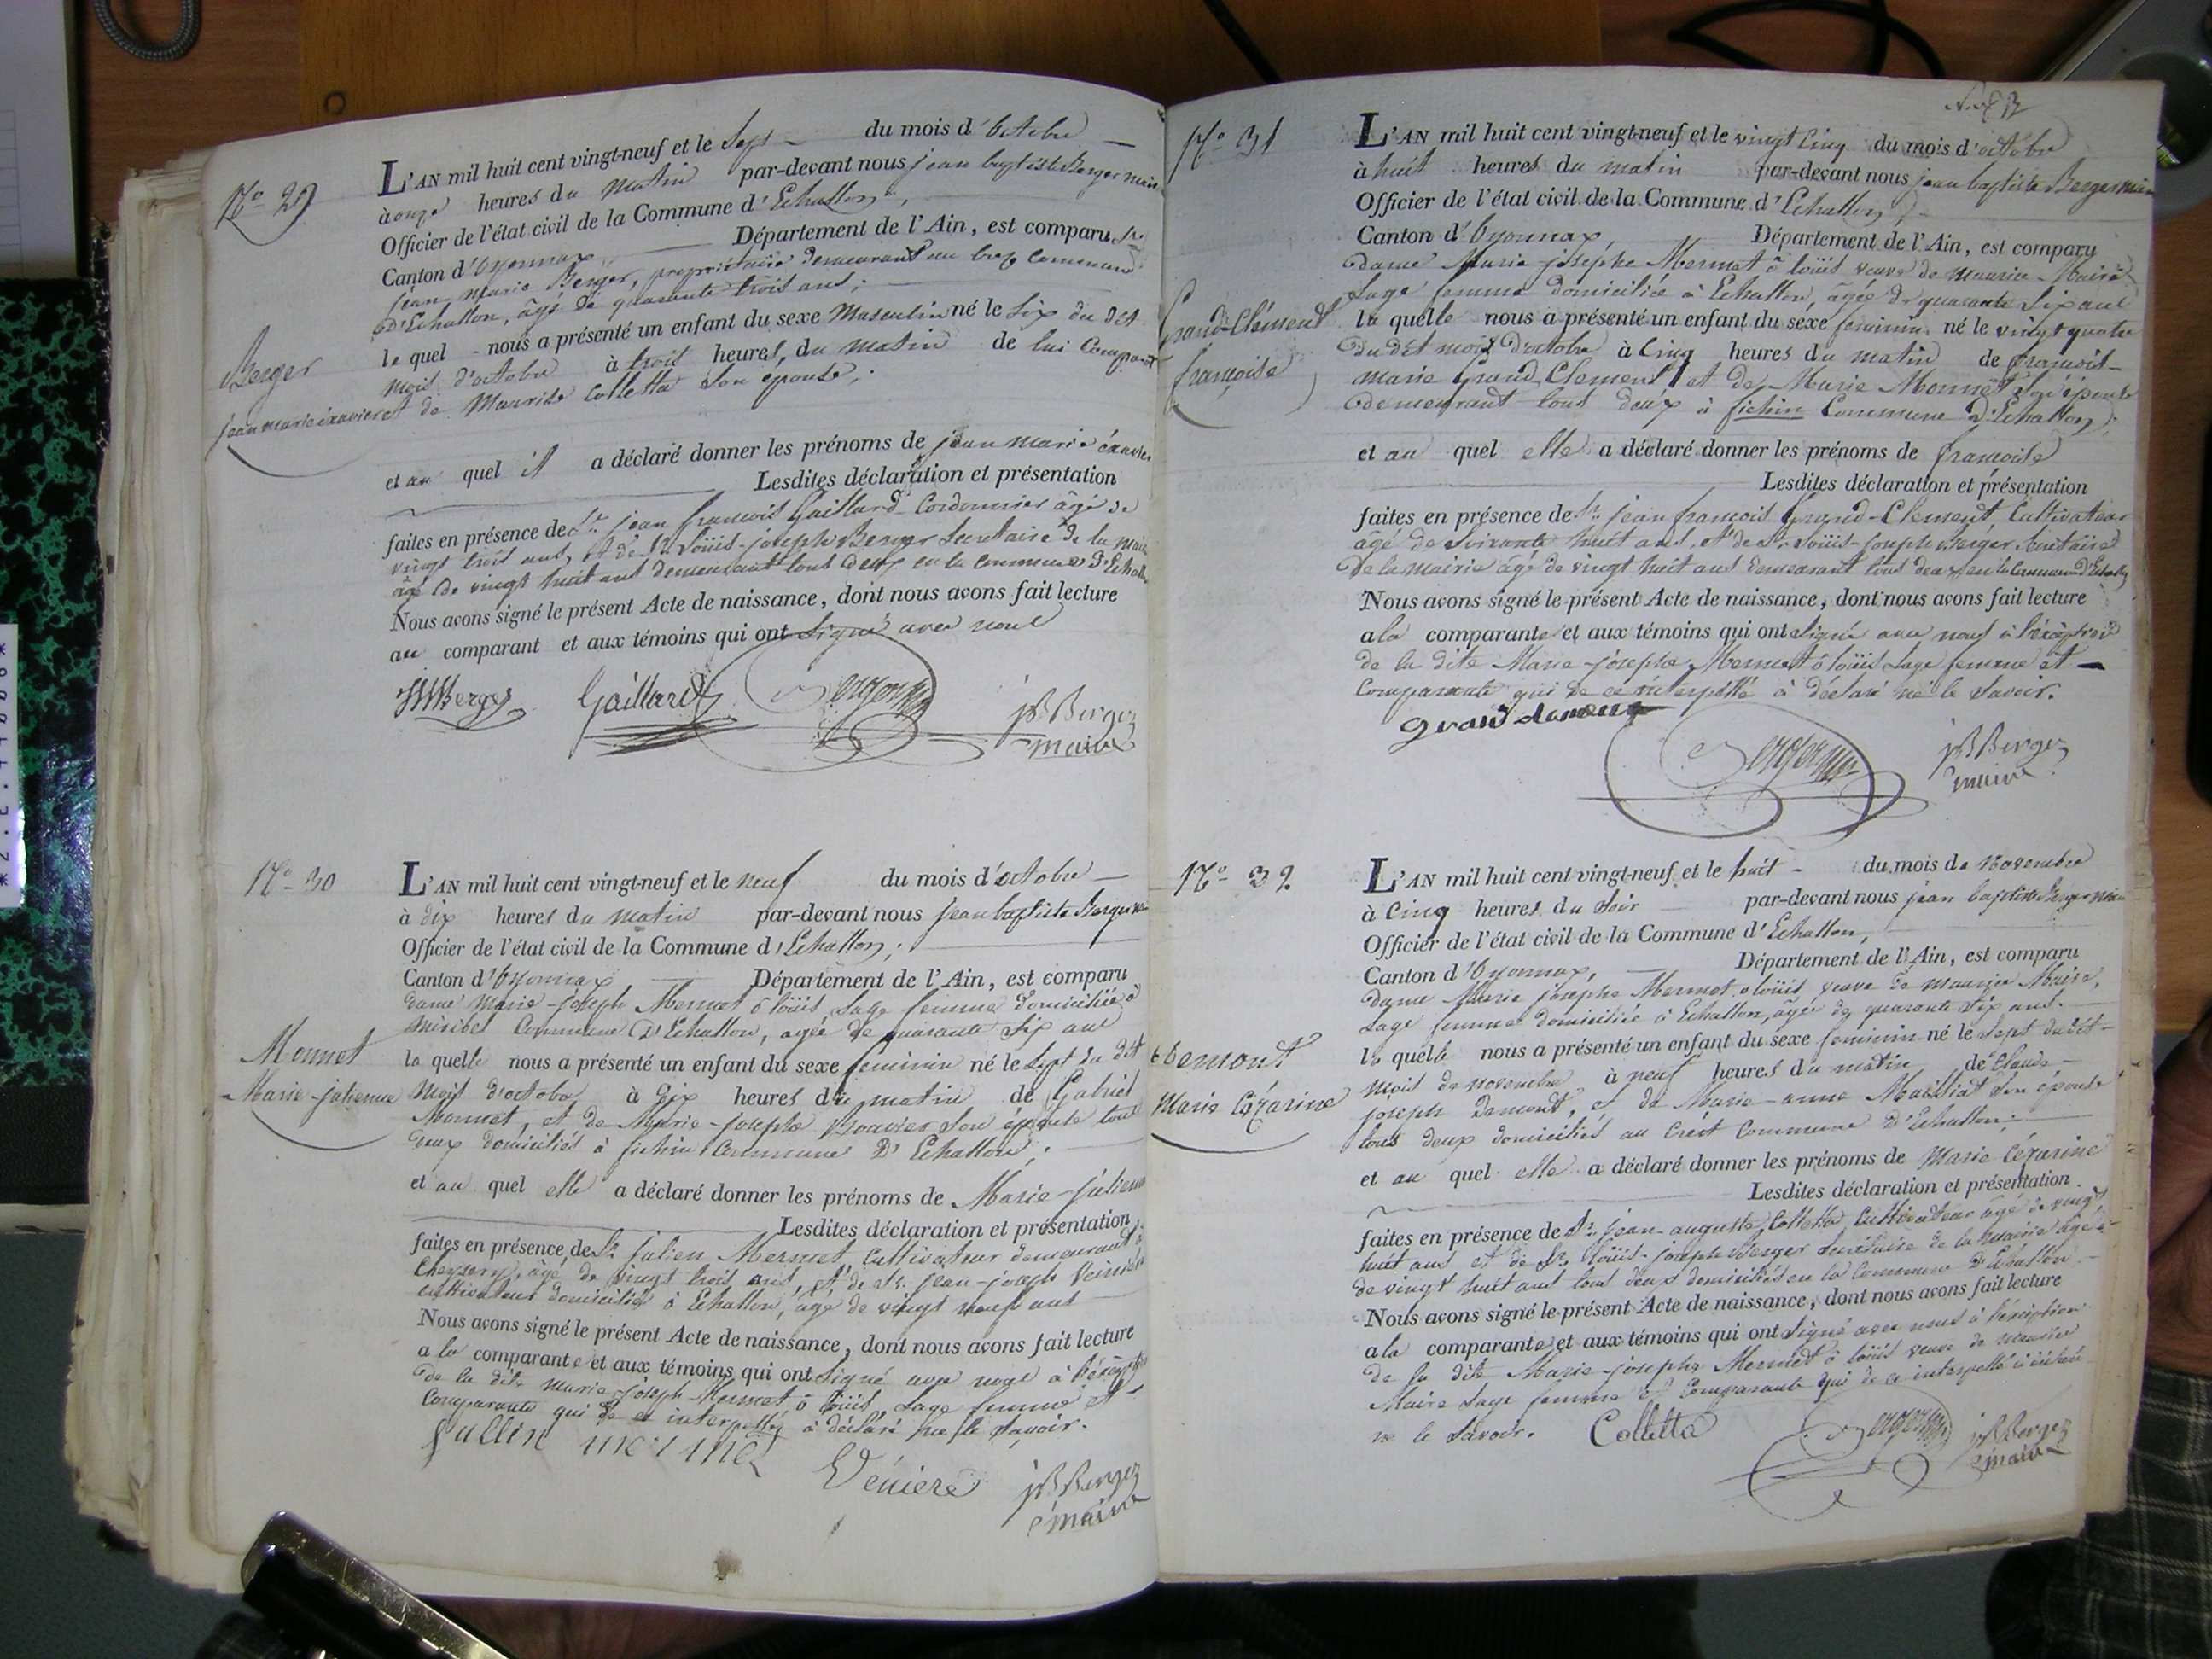 No 29
Berger
jean marie éxavier
L'AN mil huit cent vingt-neuf et le Sept du mois d'Octobre
à onze heures du matin par-devant nous jean baptiste Berger maire
Officier de l'état civil de la Commune d'Echallon,
Canton d'Oyonnax Département de l'Ain, est comparu Sr.
jean-Marie Berger, propriétaire demeurant au Commune
d'Echallon, âgé de quarante trois ans;
le quel nous a présenté un enfant du sexe Masculin né le Six du dit
mois d'octobre à trois heures, du matin de lui Comparant
et de Maurise Colletta son épouse;
et au quel il a déclaré donner les prénoms de jean marie éxavier
Lesdites déclaration et présentation
faites en présence de Sr. jean françois Gaillard Cordonnier âgé de
vingt trois ans, et de Sr. Loüis-joseph Berger Secrétaire de la mairie
âgé de vingt huit ans demeurant tous deux en la commune d'Echallon
Nous avons signé le présent Acte de naissance, dont nous avons fait lecture
au comparant et aux témoins qui ont signé avec nous
JMBerger Gaillard Berger jBBerger
maire
No 30
Monnet
Marie-julienne
L'AN mil huit cent vingt-neuf et le neuf du mois d'octobre
à dix heures du matin par-devant nous jean baptiste Berger maire
Officier de l'état civil de la Commune d'Echallon;
Canton d'Oyonnax Département de l'Ain, est comparu
dame Marie-joseph Mermet ô loüis, Sage femme domiciliée à
Miribel Commune D'Echallon, agée de quarante Six ans
la quelle nous a présenté un enfant du sexe feminin né le Sept du dit
Mois d'octobre à Dix heures du matin de Gabriel
Monnet, et de Marie-josephe Bouvier Son épouse tous
deux domiciliés à fichin Commune D'Echallon;
et au quel elle a déclaré donner les prénoms de Marie-julienne
Lesdites déclaration et présentation
faites en présence de Sr. julien Mermet, Cultivateur demeurant à
âgé de vingt trois ans, et de Sr. jean-joseph
cultivateur domicilié à Echallon, âgé de vingt neuf ans
Nous avons signé le présent Acte de naissance, dont nous avons fait lecture
a la comparante et aux témoins qui ont Signé avec nous à l'éxception
de la dite Marie joseph Mermet ô loüis, Sage femme et
Comparante qui de ce interpellée à déclaré ne le Savoir.
jullin mermet Véniere jBBerger
maire
No 31
Grand-Clément
françoise
L'AN mil huit cent vingt-neuf et le vingt Cinq du mois d'octobre
à huit heures du matin par-devant nous jean baptiste Berger maire
Officier de l'état civil de la Commune d'Echallon;
Canton d'Oyonnax, Département de l'Ain, est comparu
dame Marie josephe Mermet ô loüis veuve de maurice Maire
Sage femme domiciliée à Echallon, âgée de quarante Six ans
la quelle nous a présenté un enfant du sexe feminin né le vingt quatre
du dit mois d'octobre à Cinq heures du matin de françois-
marie Grand-Clement et de Marie Monnet Son épouse
demeurant tous deux à fichin Commune D'Echallon;
et au quel elle a déclaré donner les prénoms de françoise
Lesdites déclaration et présentation
faites en présence de Sr. jean françois Grand-Clement, Cultivateur
agé de Soixante huit ans, et de Sr. Loüis-joseph Berger, Secrétaire
de la mairie âgé de vingt huit ans demeurant tous deux en la Commune d'Echallon
Nous avons signé le présent Acte de naissance, dont nous avons fait lecture
a la comparante et aux témoins qui ont Signé avec nous à l'éxception
de la dite Marie-josephe Mermet ô loüis Sage femme et
Comparante qui de ce interpellé à déclaré ne le Savoir.
Berger jBBerger
maire
No 32
Demont
Marie Cézarine
L'AN mil huit cent vingt-neuf et le huit du mois de Novembre
à Cinq heures du Soir par-devant nous jean baptiste Berger maire
Officier de l'état civil de la Commune d'Echallon,
Canton d'Oyonnax, Département de l'Ain, est comparu
dame Marie josephe Mermet o loüis veuve de maurice Maire,
Sage femme domiciliée à Echallon, âgée de quarante Six ans.
la quelle nous a présenté un enfant du sexe feminin né le Sept du dit
mois de novembre à neuf heures du matin de Claude-
joseph Demont, et de Marie-anne Maissiat Son épouse
tous deux domiciliés au Crêt Commune D'Echallon;
et au quel elle a déclaré donner les prénoms de Marie Cézarine
Lesdites déclaration et présentation
faites en présence de Sr. jean-auguste Colletta, Cultivateur âgé de vingt
huit ans et de Sr. loüis-joseph Berger Secrétaire de la Mairie âgé
de vingt huit ans tous deux domiciliés en la Commune D'Echallon
Nous avons signé le présent Acte de naissance, dont nous avons fait lecture
a la comparante et aux témoins qui ont Signé avec nous à l'éxception
de la dite Marie-josephe Mermet o loüis veuve de maurice
Maire Sage femme et Comparante qui de ce interpellé à déclaré
ne le Savoir. Colletta Berger jBBerger
maire